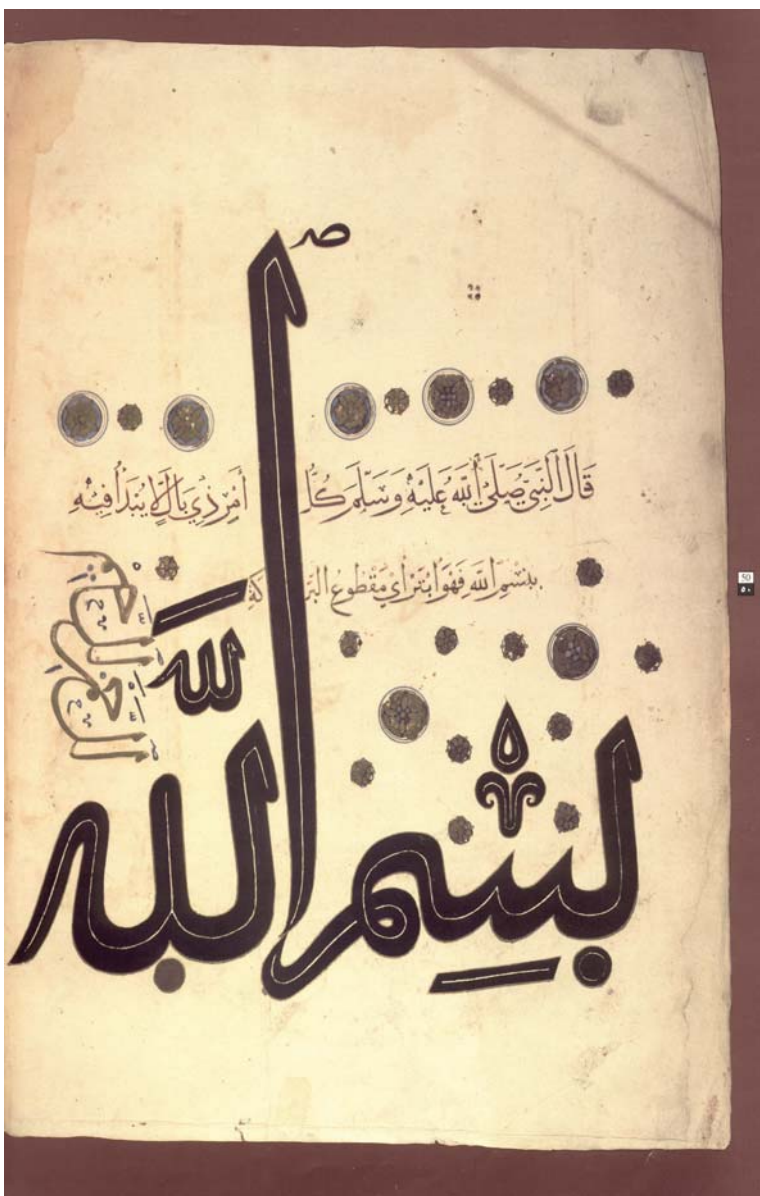 قَالَ النَّبِيُّ صَلَّى اللَّهُ عَلَيْهِ وَسَلَّمَ كُلُّ أَمْرٍ ذِي بَالٍ لَا يُبْدَأُ فِيهِ
بِبِسْمِ اللَّهِ فَهُوَ أَبْتَرُ أَيْ مَقْطُوعُ الْبَرَكَةِ
بِسْمِ اللَّهِ
الرَّحْمٰنِ الرَّحِيمِ
50
٥٠